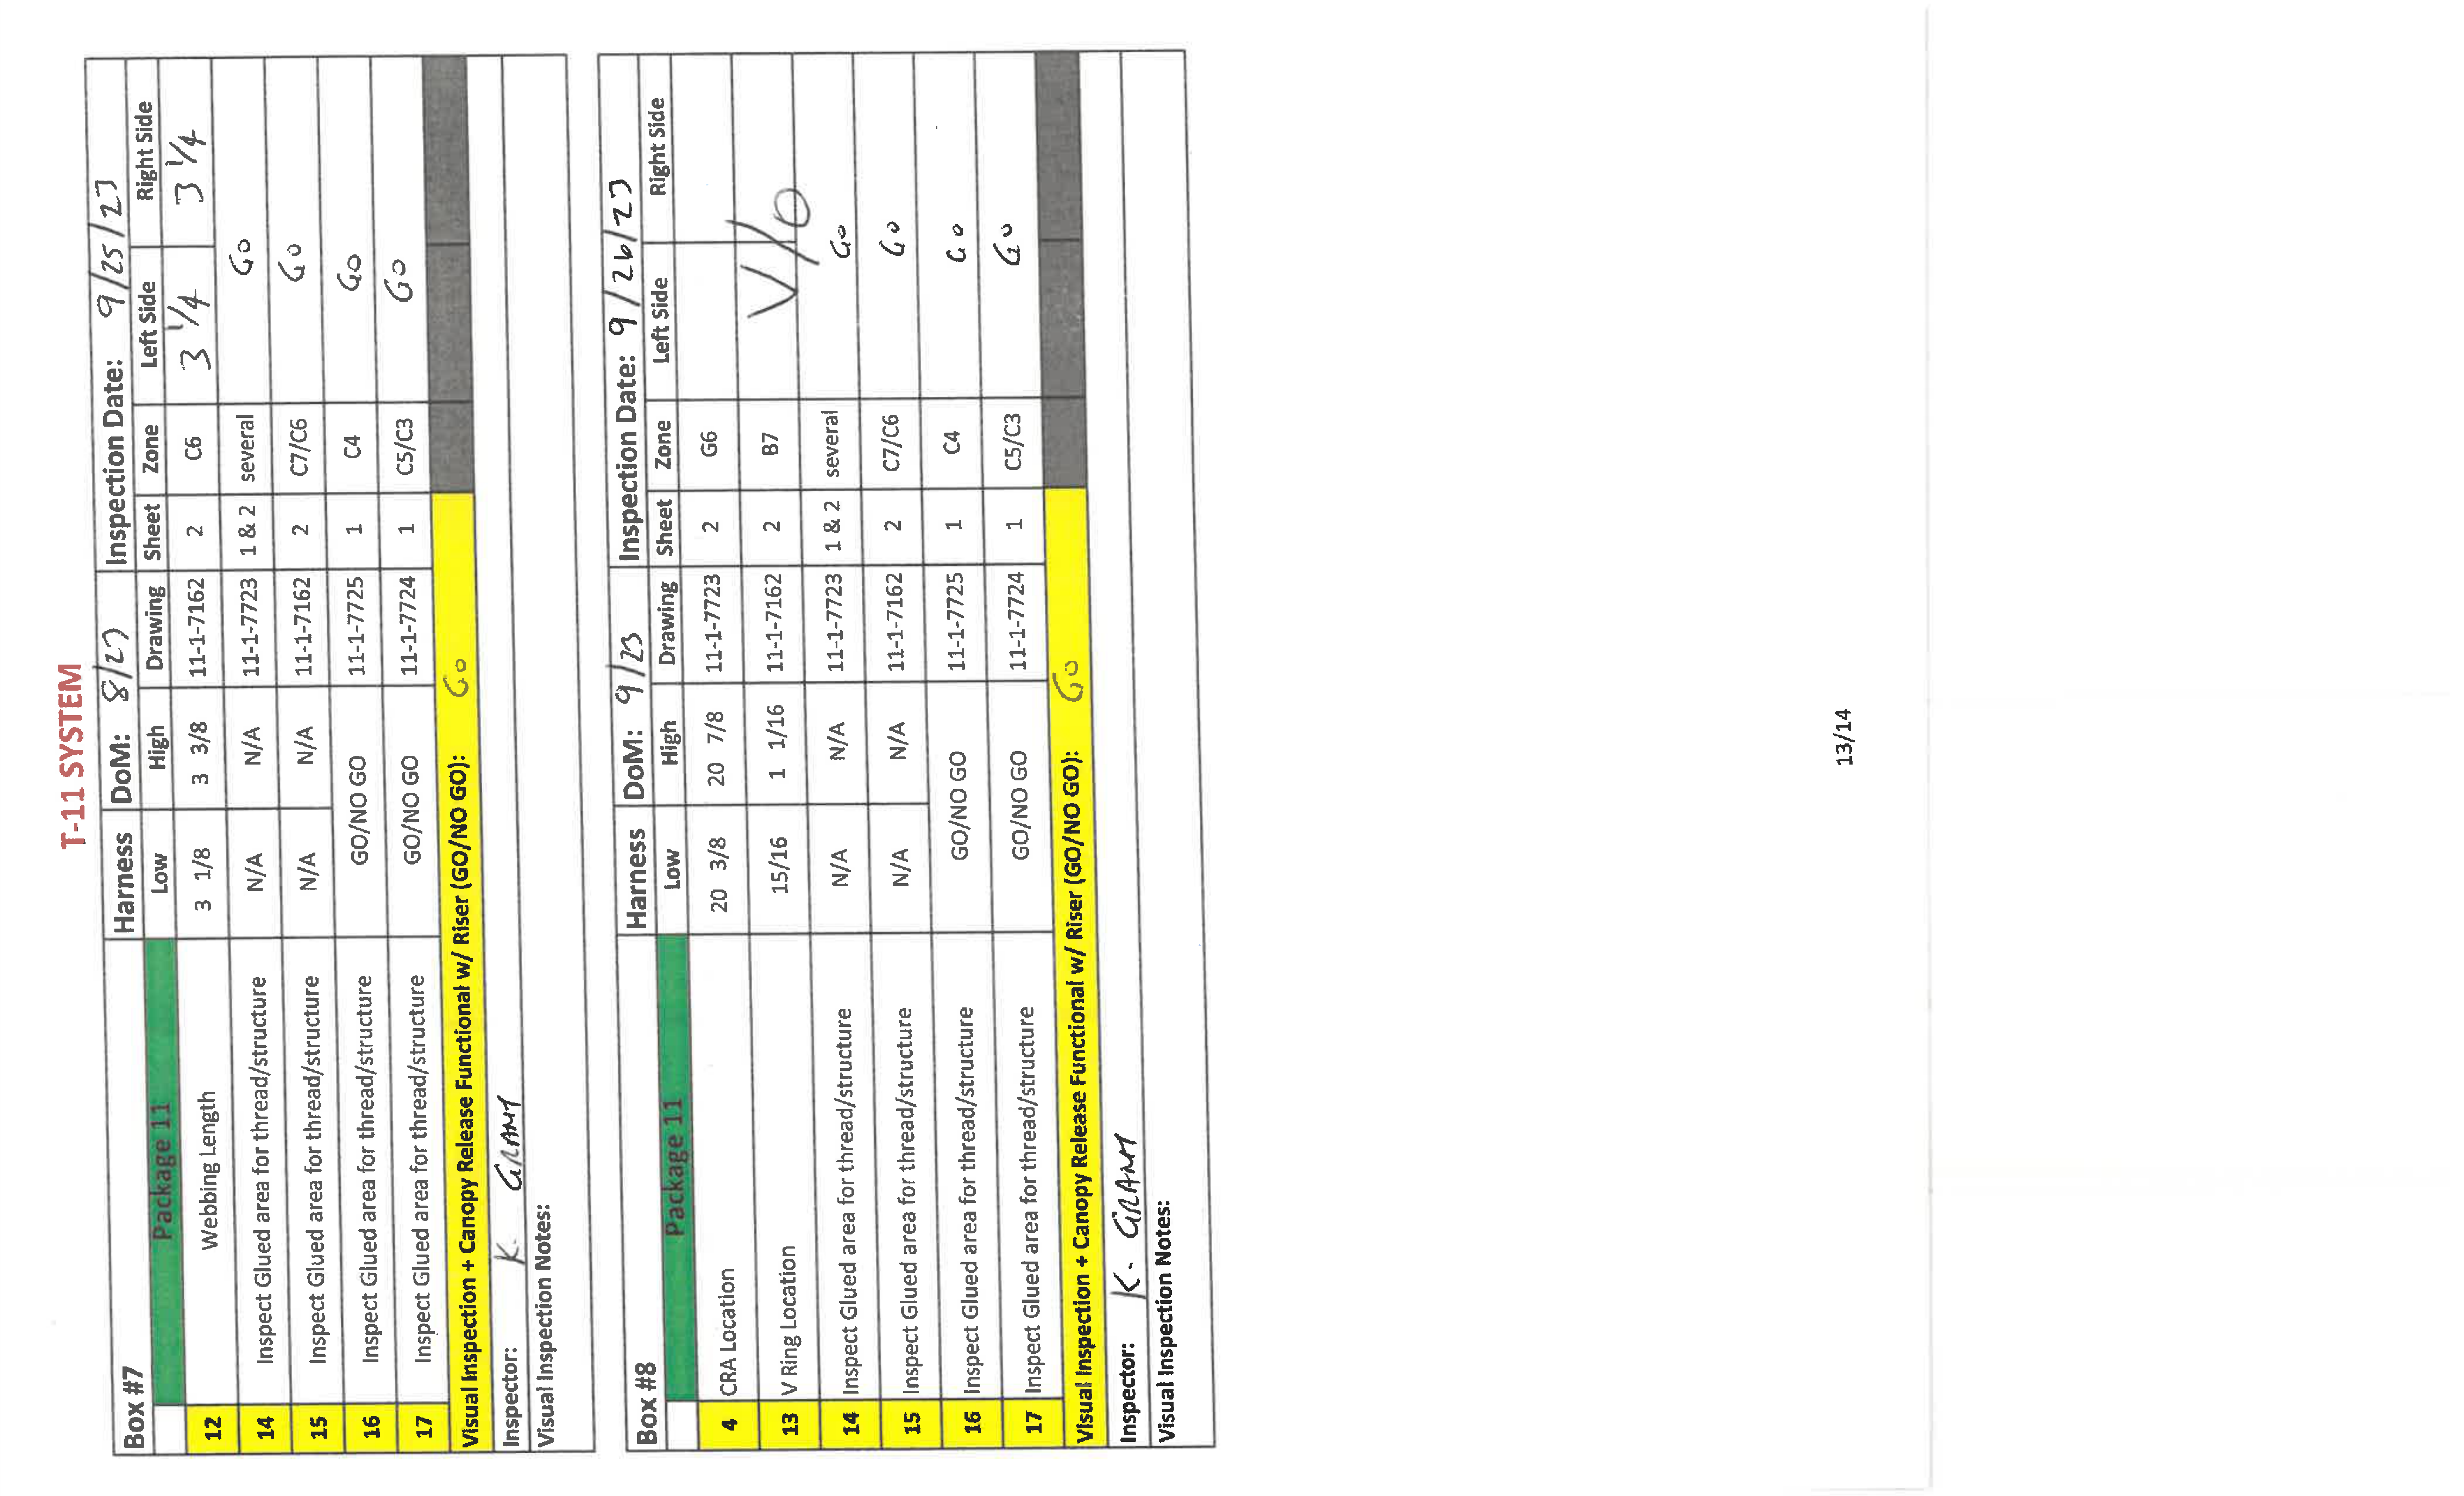 T-11 SYSTEM
Box #7 Harness DoM: 8/23 Inspection Date: 9/25/23
Package 11 Low High Drawing Sheet Zone Left Side Right Side
12 Webbing Length 3 1/8 3 3/8 11-1-7162 2 C6 3 1/4 3 1/4
14 Inspect Glued area for thread/structure N/A N/A 11-1-7723 1 & 2 several Go
15 Inspect Glued area for thread/structure N/A N/A 11-1-7162 2 C7/C6 Go
16 Inspect Glued area for thread/structure GO/NO GO 11-1-7725 1 C4 Go
17 Inspect Glued area for thread/structure GO/NO GO 11-1-7724 1 C5/C3 Go
Visual Inspection + Canopy Release Functional w/ Riser (GO/NO GO): Go
Inspector: K. GRANT
Visual Inspection Notes:
Box #8 Harness DoM: 9/23 Inspection Date: 9/26/23
Package 11 Low High Drawing Sheet Zone Left Side Right Side
4 CRA Location 20 3/8 20 7/8 11-1-7723 2 G6
13 V Ring Location 15/16 1 1/16 11-1-7162 2 B7 V/O
14 Inspect Glued area for thread/structure N/A N/A 11-1-7723 1 & 2 several Go
15 Inspect Glued area for thread/structure N/A N/A 11-1-7162 2 C7/C6 Go
16 Inspect Glued area for thread/structure GO/NO GO 11-1-7725 1 C4 Go
17 Inspect Glued area for thread/structure GO/NO GO 11-1-7724 1 C5/C3 Go
Visual Inspection + Canopy Release Functional w/ Riser (GO/NO GO): Go
Inspector: K. GRANT
Visual Inspection Notes:
13/14